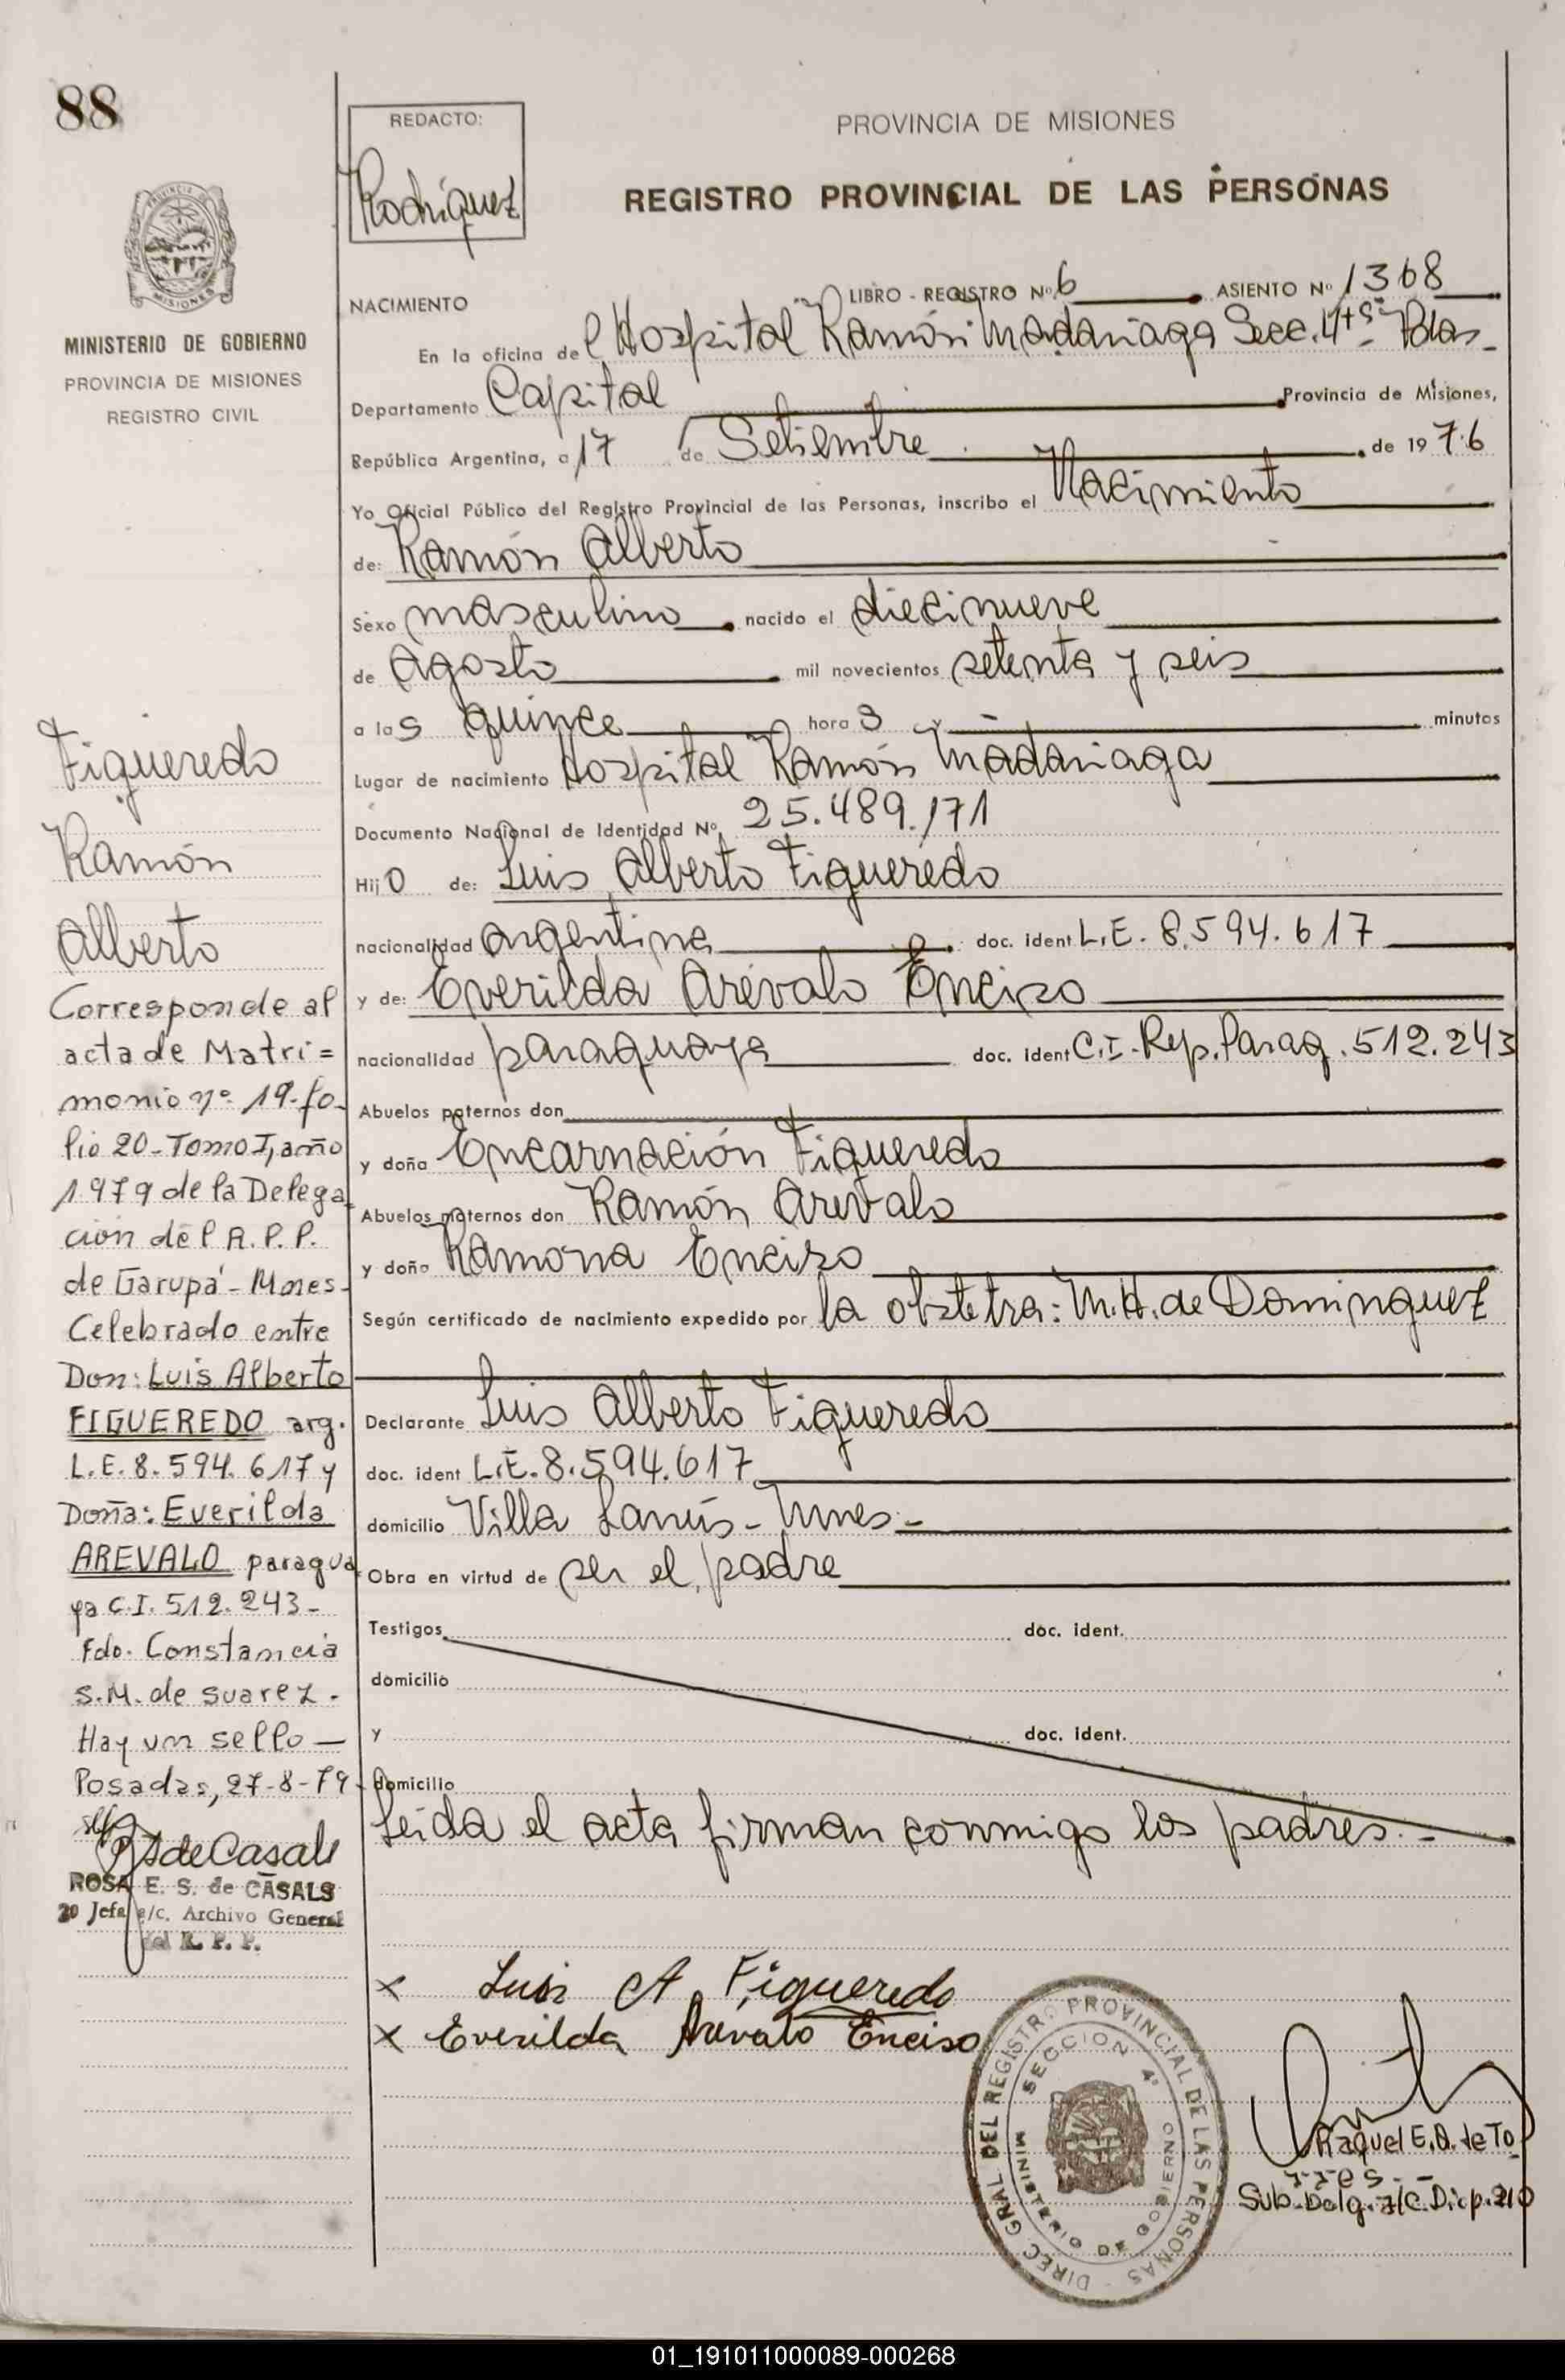 88
MINISTERIO DE GOBIERNO
PROVINCIA DE MISIONES
REGISTRO CIVIL
Figueredo
Ramón
Alberto
Corresponde al
acta de Matri=
monio nº 19-fo-
lio 20-Tomo I, año
1979 de la Delega
ción del R.P.P.
de Garupá - Mnes-
Celebrado entre
Don: Luis Alberto
FIGUEREDO arg.
L.E. 8.594.617 y
Doña: Everilda
AREVALO paragua
ya C.I. 512.243-
Fdo. Constancia
S.M. de Suarez.
Hay un sello —
Posadas, 27-8-79-
ROSA E. S. de CASALS
Jefa e/c. Archivo General
del R. P. P.
REDACTO:
Rodríguez
PROVINCIA DE MISIONES
REGISTRO PROVINCIAL DE LAS PERSONAS
NACIMIENTO LIBRO - REGISTRO Nº 6 ASIENTO Nº 1368
En la oficina del Hospital "Ramón Madariaga Secc. 4ta Pdas-
Departamento Capital Provincia de Misiones,
República Argentina, a 17 de Setiembre de 1976
Yo Oficial Público del Registro Provincial de las Personas, inscribo el Nacimiento
de: Ramón Alberto
Sexo masculino nacido el diecinueve
de Agosto mil novecientos setenta y seis
a las quince horas y - minutos
Lugar de nacimiento Hospital Ramón Madariaga
Documento Nacional de Identidad Nº 25.489.171
Hijo de: Luis Alberto Figueredo
nacionalidad argentina doc. ident L.E. 8.594.617
y de: Everilda Arévalo Enciso
nacionalidad paraguaya doc. ident C.I. Rep. Parag. 512.243
Abuelos paternos don
y doña Encarnación Figueredo
Abuelos maternos don Ramón Arévalo
y doña Ramona Enciso
Según certificado de nacimiento expedido por la obstetra: M.H. de Dominguez
Declarante Luis Alberto Figueredo
doc. ident L.E. 8.594.617
domicilio Villa Lanús - Mnes -
Obra en virtud de ser el padre
Testigos doc. ident.
domicilio
y doc. ident.
domicilio
Leída el acta firman conmigo los padres.-
x Luis A Figueredo
x Everilda Arevalo Enciso
DIREC GRAL DEL REGISTRO PROVINCIAL DE LAS PERSONAS
SECCION 4º
MINISTERIO DE GOBIERNO
Raquel E. Q. de To
rres -
Sub-Delg. a/c. Disp. 210
01_191011000089-000268